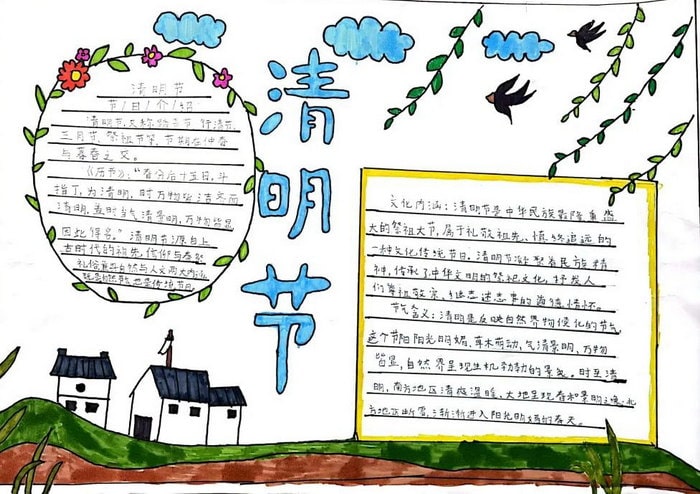 清明节
清明节
节/日/介/绍
清明节,又称踏青节、行清节、
三月节、祭祖节等,节期在仲春
与暮春之交。
《历书》:“春分后十五日,斗
指丁,为清明,时万物皆洁齐而
清明,盖时当气清景明,万物皆显,
因此得名。”清明节源自上
古时代的祖先信仰与春祭
礼俗,兼具自然与人文两大内涵,
文化内涵:清明节是中华民族最隆重盛
大的祭祖大节,属于礼敬祖先、慎终追远的
一种文化传统节日。清明节凝聚着民族精
神,传承了中华文明的祭祀文化,抒发人
们尊祖敬宗、继志述事的道德情怀。
节气含义:清明是反映自然界物候变化的节气,
这个节阳阳光明媚、草木萌动,气清景明、万物
皆显,自然界呈现生机勃勃的景象。时至清
明,南方地区清夜温暖,大地呈现春和景明之境,北
方地区断雪,渐渐进入阳光明媚的春天。